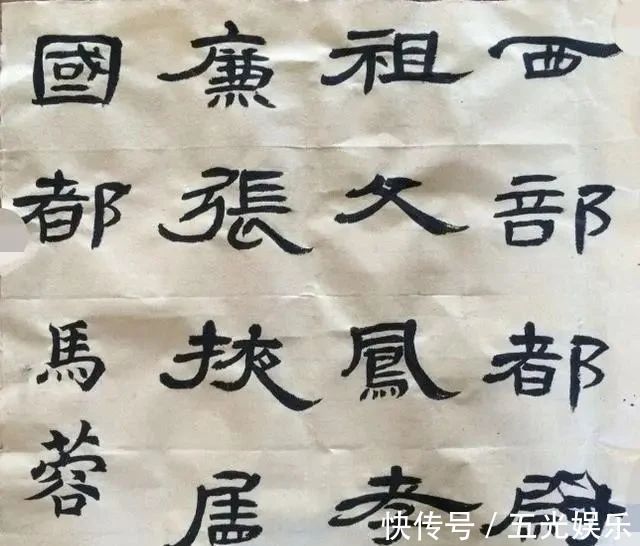 西部都尉
祖父鳳孝
廉張掖屬
國都
馬蓉
快传号/五光娱乐